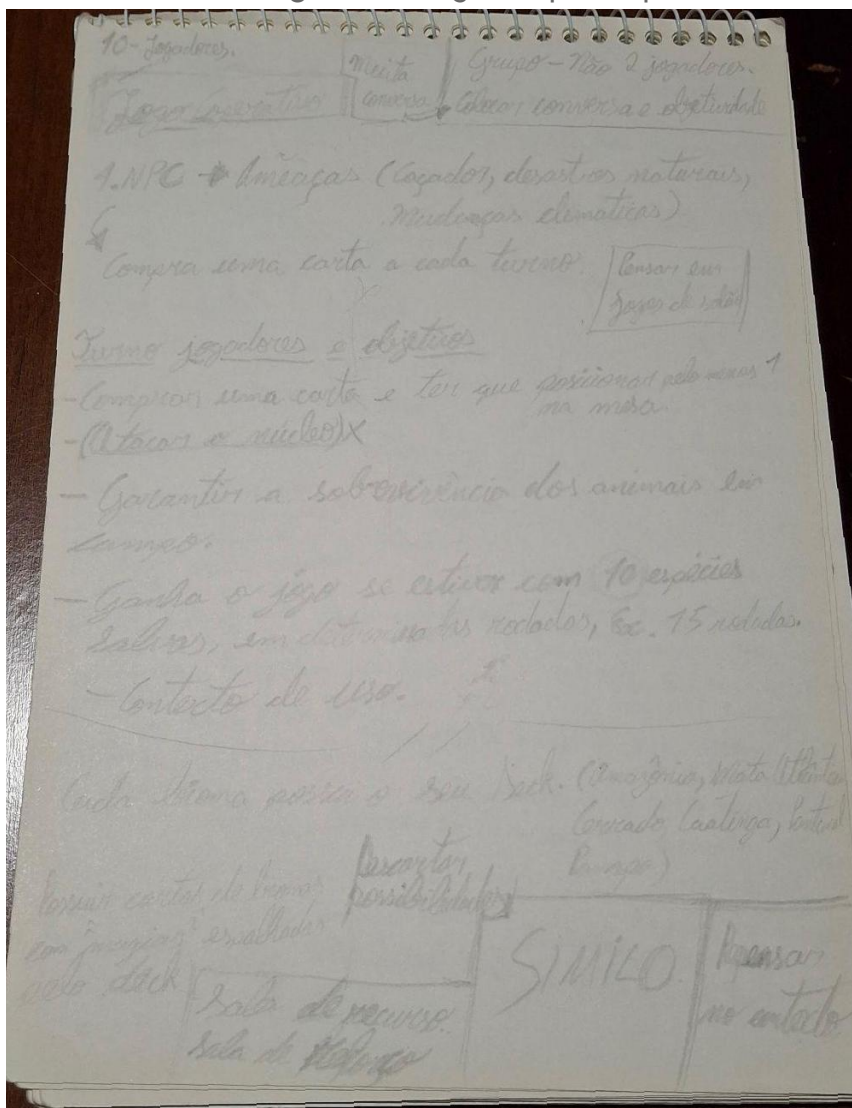 10 - Jogadores.
Jogo Cooperativo
Muita
conversa
Grupo - Não 2 jogadores.
Colocar conversa e objetividade
1. NPC → Ameaças (Caçador, desastres naturais,
Mudanças climáticas)
Compra uma carta a cada turno.
Pensar em
Jogos de salão
Turno jogadores e objetivos
- Comprar uma carta e ter que posicionar pelo menos 1
na mesa.
- (Atacar o núcleo) X
- Garantir a sobrevivência dos animais em
campo.
- Ganha o jogo se estiver com 10 espécies
Salvas, em determinadas rodadas, Ex. 15 rodadas.
- Contexto de uso.
Cada bioma possui o seu Deck. (Amazônia, Mata Atlântica
Cerrado, Caatinga, Pantanal
Pampa)
Possuir cartas de biomas
com "imagens" espalhadas
pelo deck
Descartar
possibilidades
SIMILO
Repensar
no contexto
Sala de recurso
Sala de reforço